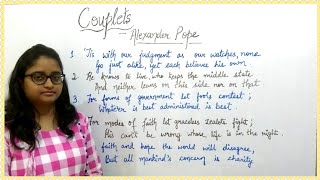 Couplets
— Alexander Pope
1. 'Tis with our judgment as our watches, none
Go just alike, yet each believes his own.
2. He knows to live, who keeps the middle state
And neither leans on this side nor on that
3. For forms of government let fools contest;
Whatever is best administered is best.
For modes of faith let graceless zealots fight;
His can't be wrong whose life is in the right.
faith and hope the world will disagree,
But all mankind's concern is charity